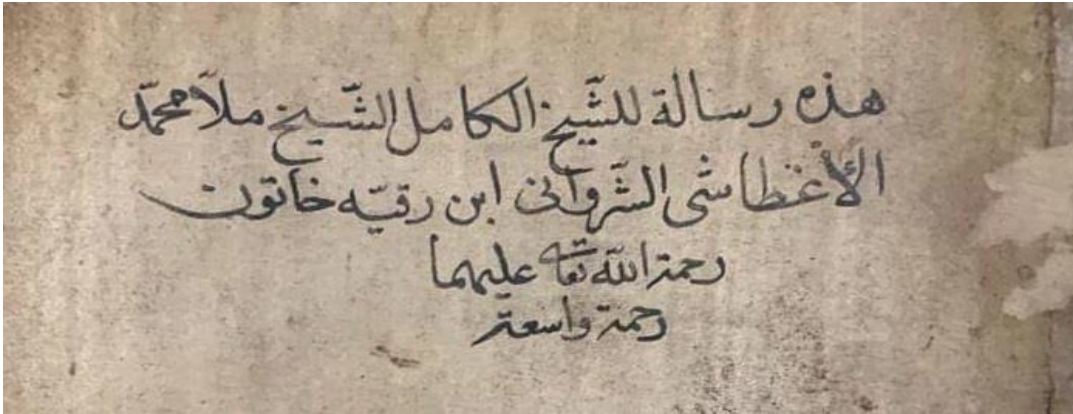 هذه رسالة للشّيخ الكامل الشّيخ ملّا محمّد
الأغطاشى الشّروانى ابن رقيّه خاتون
رحمة اللّه تعا عليهما
رحمة واسعة